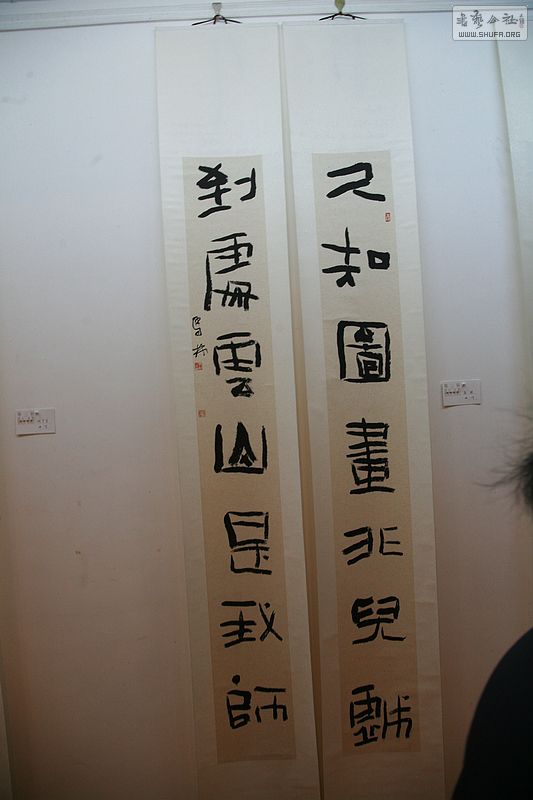 久知圖畫非兒戲
到處雲山是我師
書藝公社
WWW.SHUFA.ORG